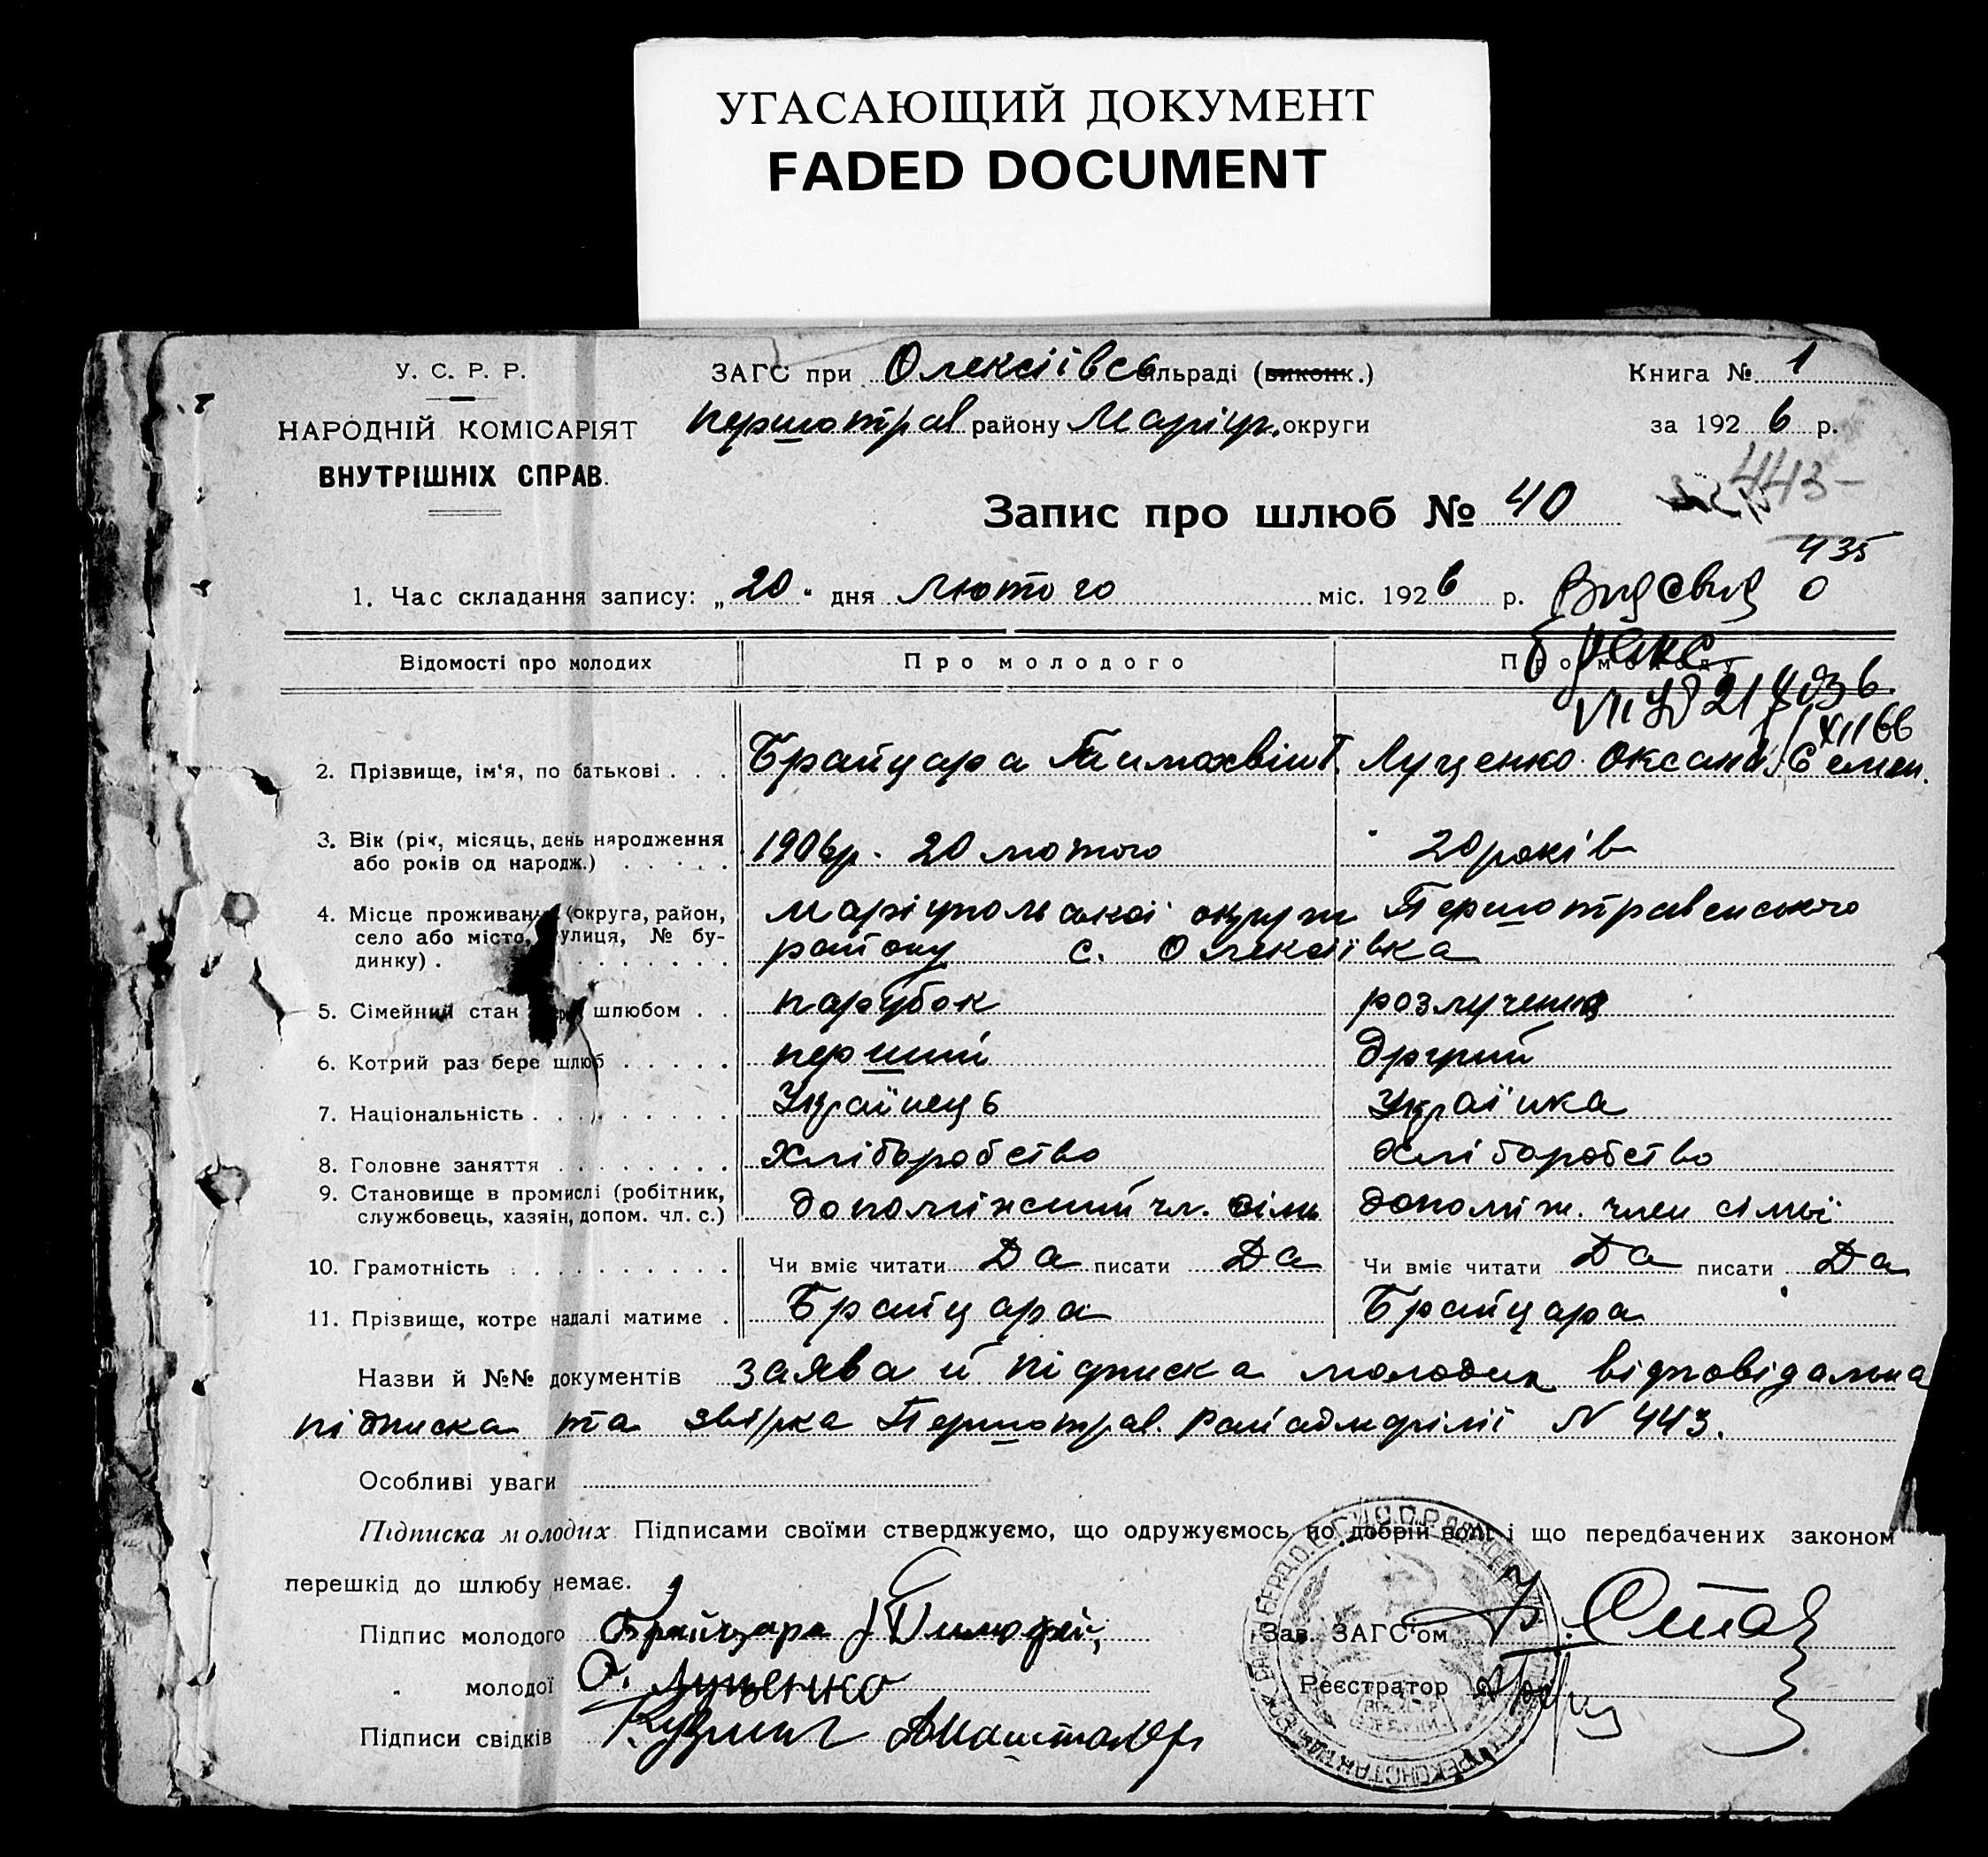 УГАСАЮЩИЙ ДОКУМЕНТ
FADED DOCUMENT
У. С. Р. Р.
НАРОДНІЙ КОМІСАРІЯТ
ВНУТРІШНІХ СПРАВ.
ЗАГС при Олексіївсь сільраді (виконк.)
Першотрав району Маріуп. округи
Книга № 1
за 1926 р.
443-
Запис про шлюб № 40
435
1. Час складання запису: „20" дня лютого міс. 1926 р.
Відомості про молодих Про молодого Про молоду
2. Прізвище, ім'я, по батькові . . . Брайцара Тимохвій Т. Луценко Оксана Семен.
3. Вік (рік, місяць, день народження 1906р. 20 лютого 20 років
або років од народж.) . . . . .
4. Місце проживання (округа, район, Маріупольської округи Першотравенського
село або місто, вулиця, № бу- району с. Олексіївка
динку) . . . . . . . .
5. Сімейний стан перед шлюбом . . парубок розлучена
6. Котрий раз бере шлюб . . . . . перший другий
7. Національність . . . . . . . Українець Українка
8. Головне заняття . . . . . . . . хліборобство хліборобство
9. Становище в промислі (робітник, допоміжний чл. сім'ї допоміж. член сімьї
службовець, хазяїн, допом. чл. с.)
10. Грамотність . . . . . . . . . . Чи вміє читати Да писати Да Чи вміє читати Да писати Да
11. Прізвище, котре надалі матиме . Брайцара Брайцара
Назви й №№ документів заява й підписка молодих відповідальна
підписка та звірка Першотрав. райадмділії N 443.
Особливі уваги
Підписка молодих Підписами своїми стверджуємо, що одружуємось по добрій волі і що передбачених законом
перешкід до шлюбу немає.
Підпис молодого Брайцара Тимофій,
молодої О. Луценко
Підписи свідків
Зав. ЗАГС'ом
Реєстратор